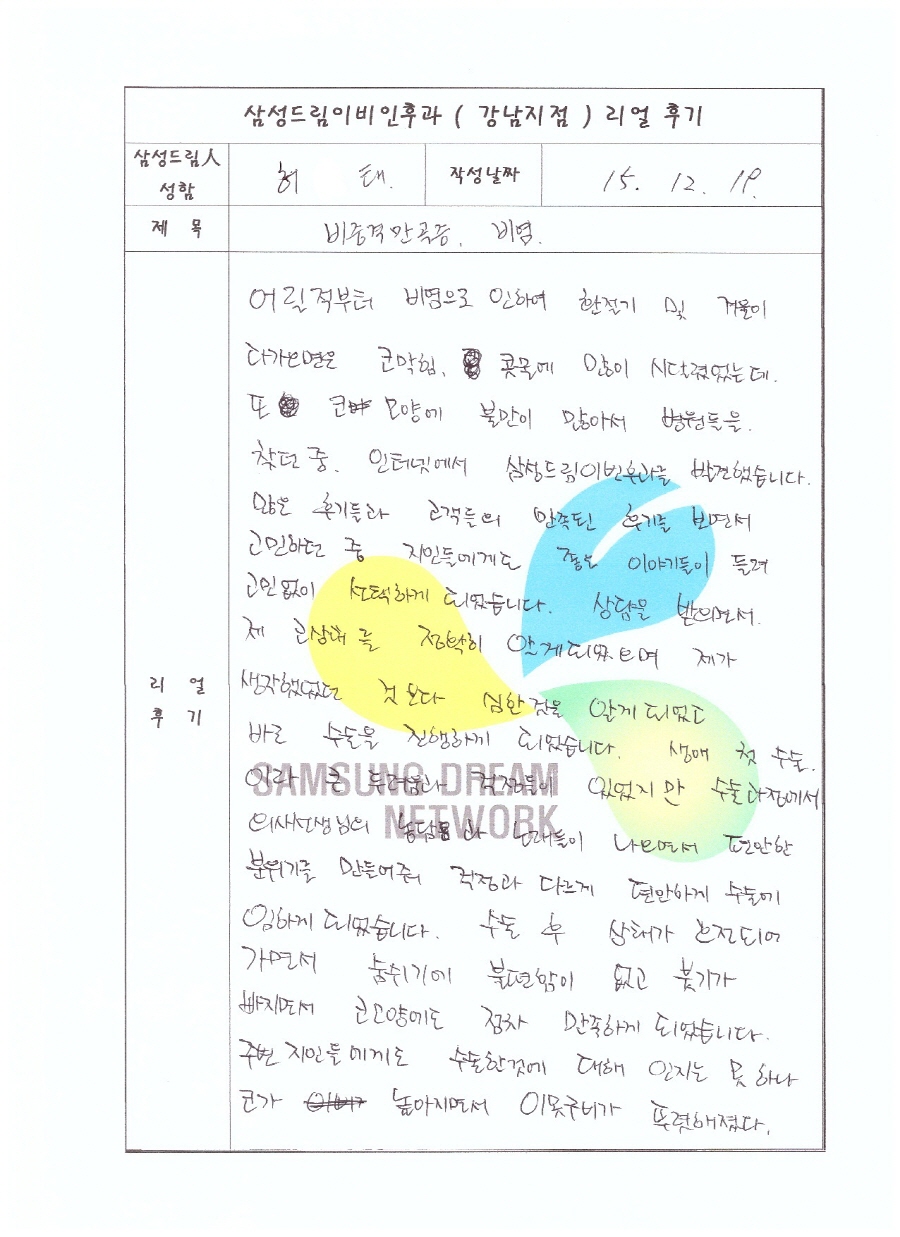 삼성드림이비인후과 ( 강남지점 ) 리얼 후기
삼성드림人
성함
허 태.
작성날짜
15. 12. 19.
제 목
비중격만곡증, 비염.
리 얼
후 기
어릴적부터 비염으로 인하여 환절기 및 겨울이
다가오면은 코막힘, 콧물에 많이 시달렸었는데.
또 코 모양에 불만이 많아서 병원들을.
찾던 중. 인터넷에서 삼성드림이빈후과를 발견했습니다.
많은 후기들과 고객들의 만족된 후기를 보면서
고민하던 중 지인들에게도 좋은 이야기들이 들려
고민없이 선택하게 되었습니다. 상담을 받으면서.
제 코상태를 정확히 알게되었으며 제가
생각했었던 것 보다 심한것을 알게 되었고
바로 수술을 진행하게 되었습니다. 생애 첫 수술.
이라 큰 두려움과 걱정들이 있었지만 수술과정에서
의사선생님의 농담과 노래들이 나오면서 편안한
분위기를 만들어줘 걱정과 다르게 편안하게 수술에
임하게 되었습니다. 수술 후 상태가 호전되어
가면서 숨쉬기에 불편함이 없고 붓기가
빠지면서 코모양에도 점차 만족하게 되었습니다.
주변 지인들에게도 수술한것에 대해 인지는 못 하나
코가 높아지면서 이목구비가 뚜렷해졌다.
SAMSUNG DREAM
NETWORK